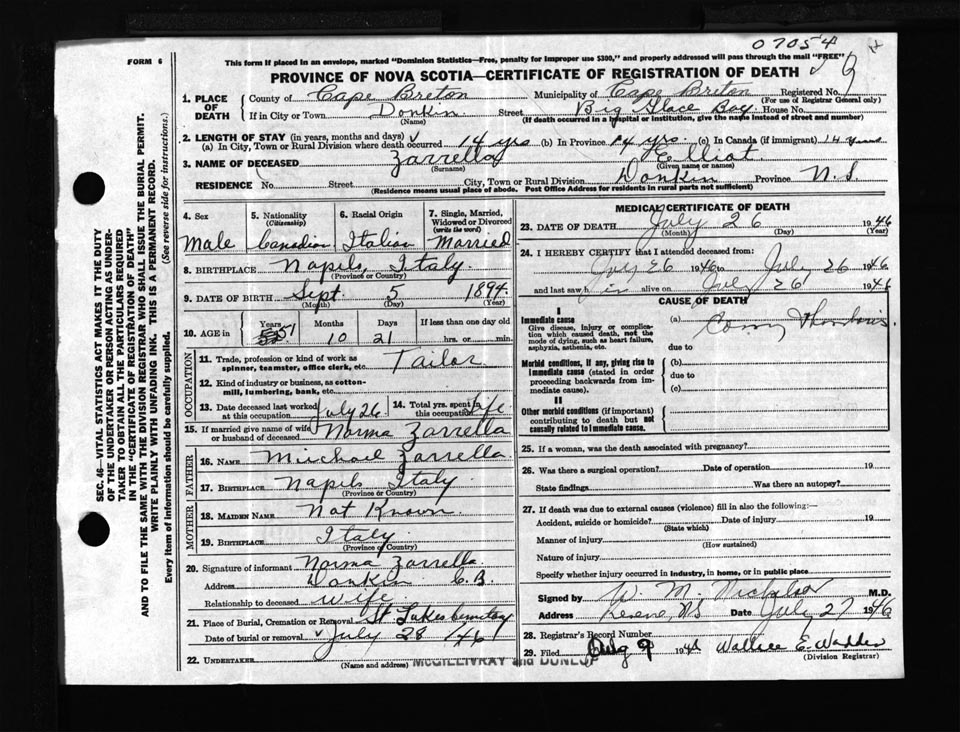 07054
FORM 6
This form if placed in an envelope, marked "Dominion Statistics—Free, penalty for improper use $300," and properly addressed will pass through the mail "FREE"
PROVINCE OF NOVA SCOTIA—CERTIFICATE OF REGISTRATION OF DEATH
1. PLACE OF DEATH County of Cape Breton Municipality of Cape Breton Registered No.
(For use of Registrar General only)
If in City or Town Donkin Street Big Glace Bay House No.
(Name) (If death occurred in a hospital or institution, give the name instead of street and number)
2. LENGTH OF STAY (in years, months and days)
(a) In City, Town or Rural Division where death occurred 14 yrs (b) In Province 14 yrs. (c) In Canada (if immigrant) 14 years
3. NAME OF DECEASED Zarrella Elliot
(Surname) (Given name or names)
RESIDENCE No. Street City, Town or Rural Division Donkin Province N.S.
(Residence means usual place of abode. Post Office Address for residents in rural parts not sufficient)
SEC. 46—VITAL STATISTICS ACT MAKES IT THE DUTY
OF THE UNDERTAKER OR PERSON ACTING AS UNDER-
TAKER TO OBTAIN ALL THE PARTICULARS REQUIRED
IN THE "CERTIFICATE OF REGISTRATION OF DEATH"
AND TO FILE THE SAME WITH THE DIVISION REGISTRAR WHO SHALL ISSUE THE BURIAL PERMIT.
WRITE PLAINLY WITH UNFADING INK. THIS IS A PERMANENT RECORD.
Every item of information should be carefully supplied. (See reverse side for instructions.)
4. Sex 5. Nationality (Citizenship) 6. Racial Origin 7. Single, Married, Widowed or Divorced (write the word)
Male Canadian Italian Married
8. BIRTHPLACE Napils, Italy
(Province or Country)
9. DATE OF BIRTH Sept. 5 1894
(Month) (Day) (Year)
10. AGE in Years Months Days If less than one day old
51 10 21 hrs. or min.
OCCUPATION
11. Trade, profession or kind of work as spinner, teamster, office clerk, etc. Tailor
12. Kind of industry or business, as cotton-mill, lumbering, bank, etc.
13. Date deceased last worked at this occupation July 26 14. Total yrs. spent in this occupation Life
15. If married give name of wife or husband of deceased Norma Zarrella
FATHER
16. NAME Michael Zarrella
17. BIRTHPLACE Napils Italy
(Province or Country)
MOTHER
18. MAIDEN NAME Not Known
19. BIRTHPLACE Italy
(Province or Country)
20. Signature of informant Norma Zarrella
Address Donkin C.B.
Relationship to deceased Wife
21. Place of Burial, Cremation or Removal St. Lukes Cemetery
Date of burial or removal July 28 / 46
22. UNDERTAKER McGILLIVRAY and DUNLOP
(Name and address)
MEDICAL CERTIFICATE OF DEATH
23. DATE OF DEATH July 26 1946
(Month) (Day) (Year)
24. I HEREBY CERTIFY that I attended deceased from:
July 26 1946 to July 26 1946
and last saw him alive on July 26 1946
CAUSE OF DEATH
I
Immediate cause (a)
Give disease, injury or complication which caused death, not the mode of dying, such as heart failure, asphyxia, asthenia, etc.
due to
Morbid conditions, if any, giving rise to immediate cause (stated in order proceeding backwards from immediate cause). (b)
due to
(c)
II
Other morbid conditions (if important) contributing to death but not causally related to immediate cause.
25. If a woman, was the death associated with pregnancy?
26. Was there a surgical operation? Date of operation 19
State findings Was there an autopsy?
27. If death was due to external causes (violence) fill in also the following:—
Accident, suicide or homicide? Date of injury 19
(State which)
Manner of injury
(How sustained)
Nature of injury
Specify whether injury occurred in industry, in home, or in public place
Signed by W. M. Nicholson M.D.
Address N.S. Date July 27 1946
28. Registrar's Record Number
29. Filed Aug 9 194 Wallace E. Wadden
(Division Registrar)